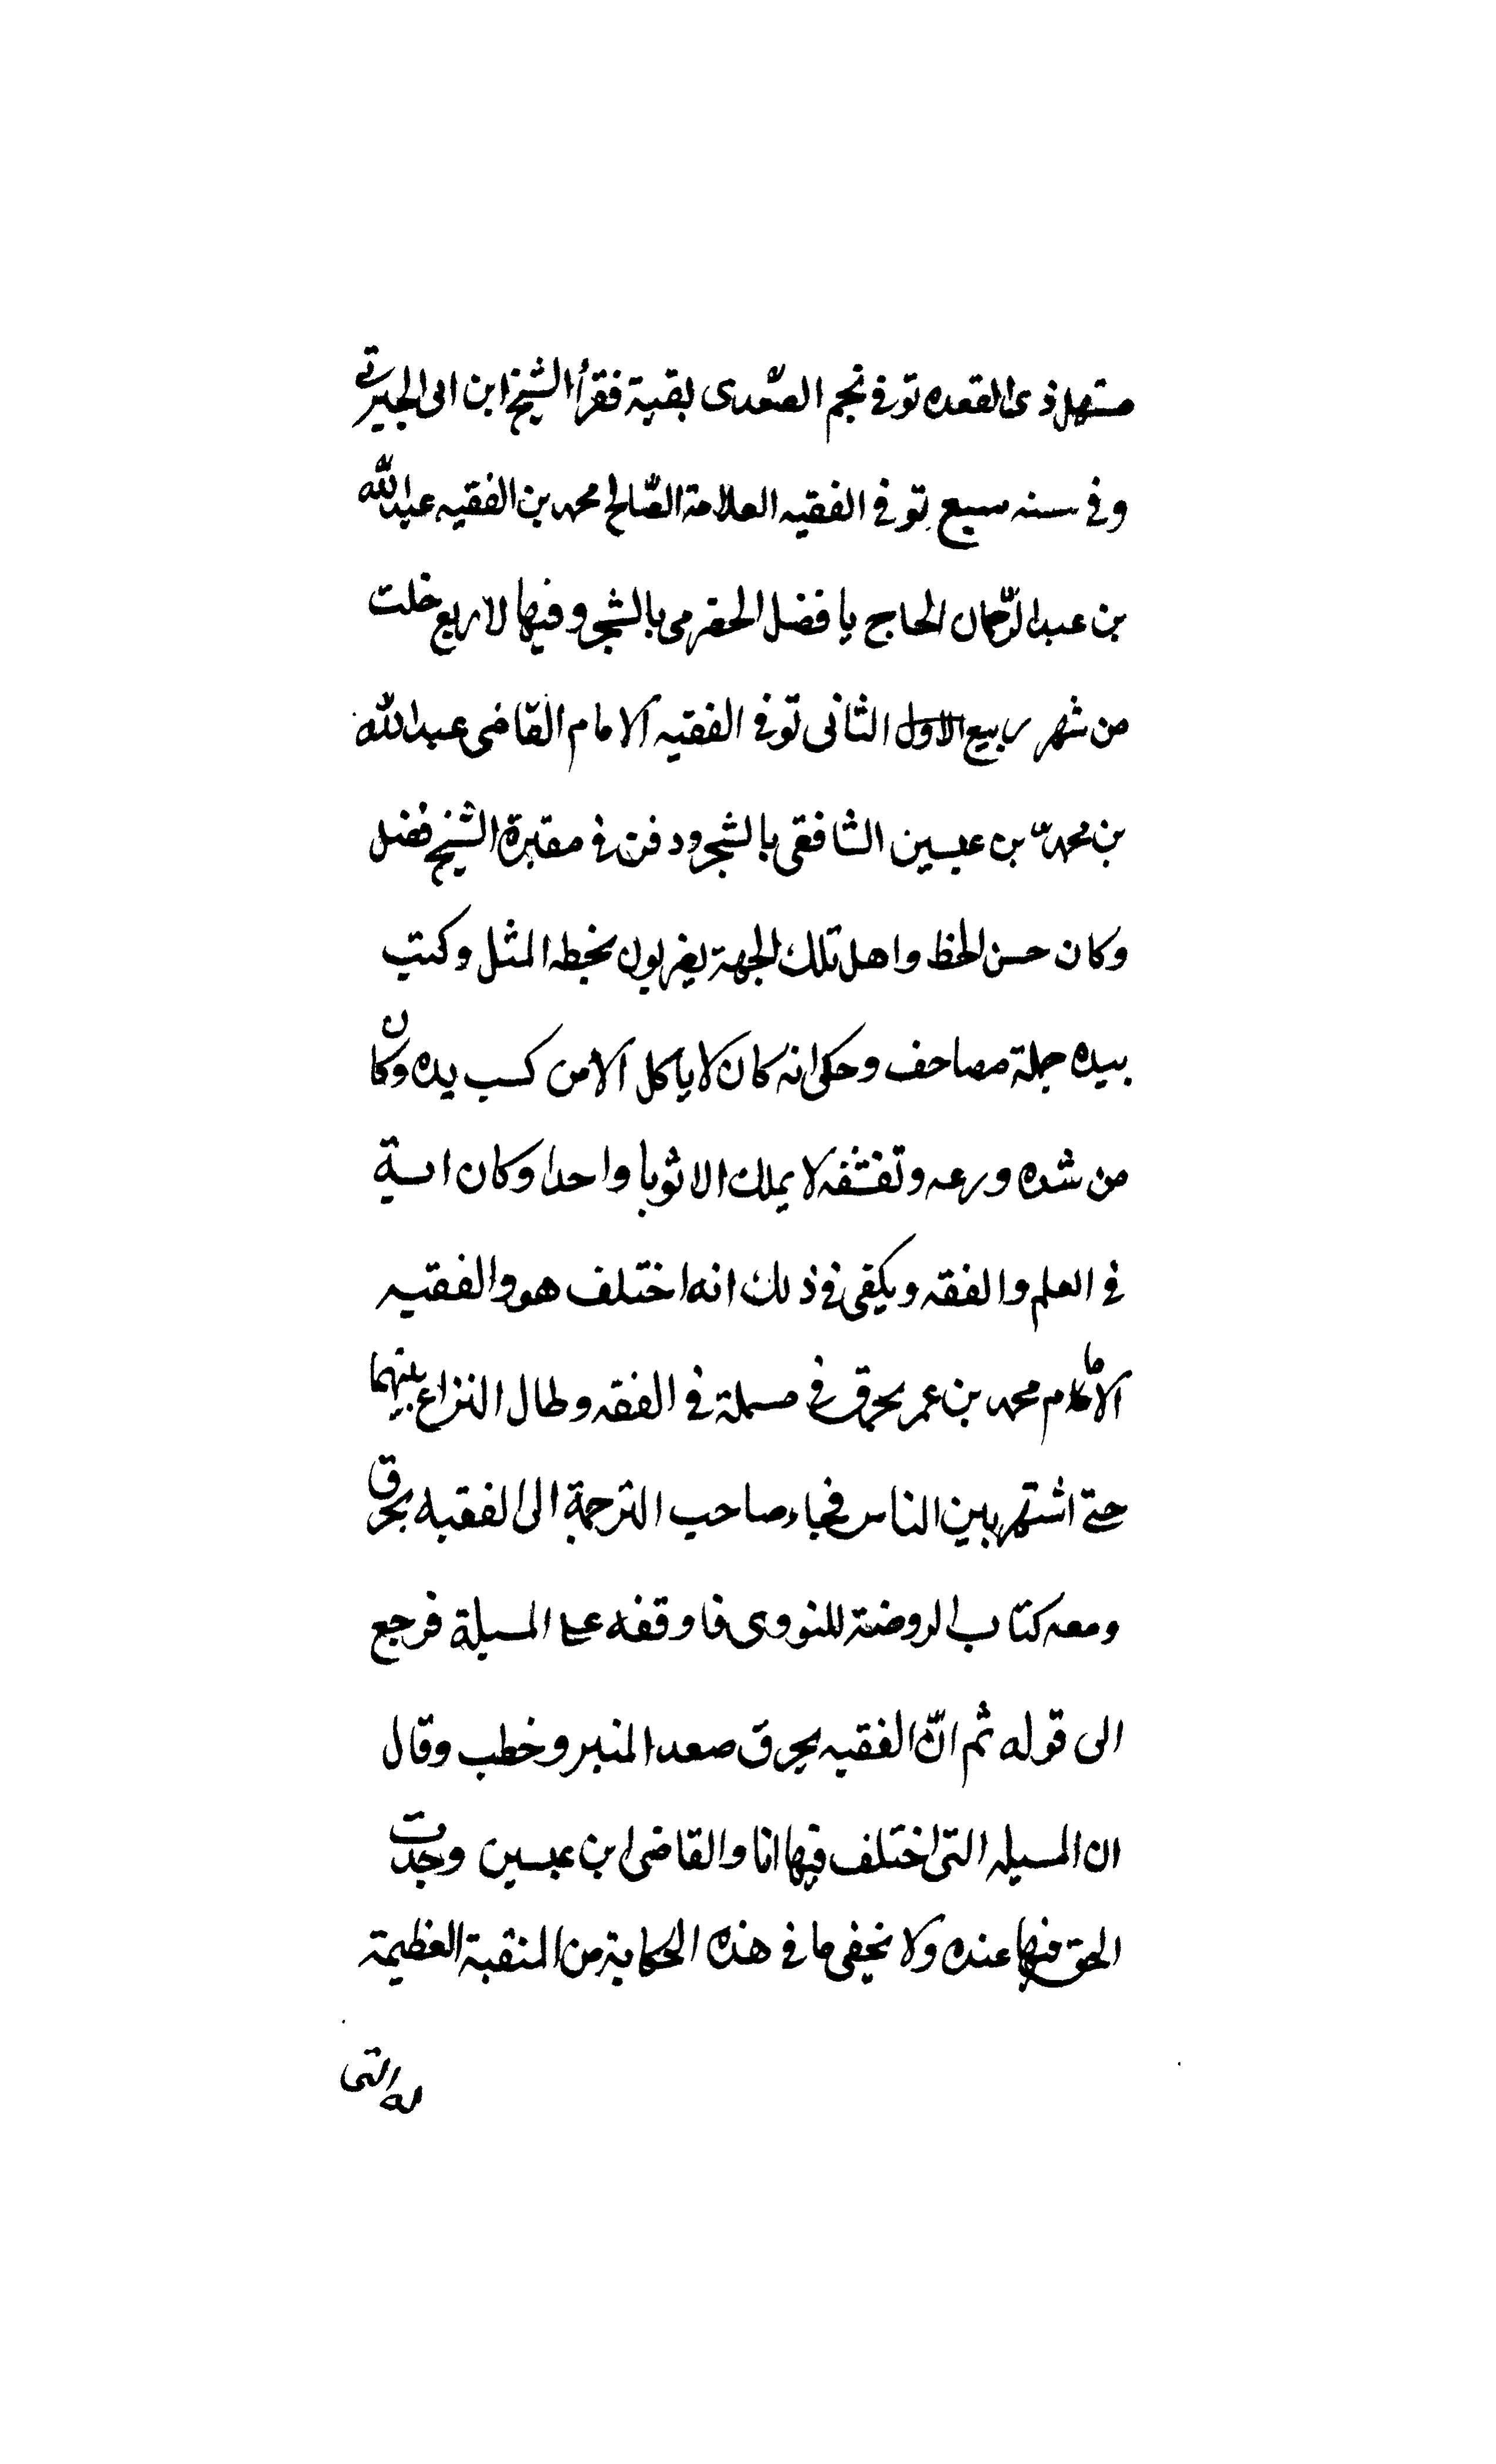 مستهل ذى القعده توفي نجم الصّعدى بقية فقرأ الشيخ ابن ابى الجبرتي
وفي سنه سبع توفي الفقيه العلامة الصّالح محمد بن الفقيه عبدالله
بن عبد الرّحمان الحاج بافضل الحضرمى بالشحر وفيها لاربع خلت
من شهر ربيع الاول الثانى توفي الفقيه الامام القاضى عبدالله
بن محمد بن عبسين الشافعى بالشحر ودفن في مقبرة الشيخ فضل
وكان حسن الخط واهل تلك الجهة يضربون بخطه المثل وكتب
بيده جملة مصاحف وحكى انه كان لا ياكل الا من كسب يده وكان
من شده ورعه وتقشفه لا يملك الا ثوبا واحدا وكان اية
في العلم والفقه ويكفى في ذلك انه اختلف هو والفقيه
الامام محمد بن عمر بحرق في مسئلة في الفقه وطال النزاع بينهما
حتى اشتهر بين الناس فجاء صاحب الترجمة الى الفقيه بحرق
ومعه كتاب الروضة للنووى فاوقفه على المسيلة فرجع
الى قوله ثم انّ الفقيه بحرق صعد المنبر وخطب وقال
ان المسيله التى اختلف فيها انا والقاضى ابن عبسين وجدت
الحق فيها عنده ولا يخفى ما في هذه الحكاية من المنقبة العظيمة
له التى